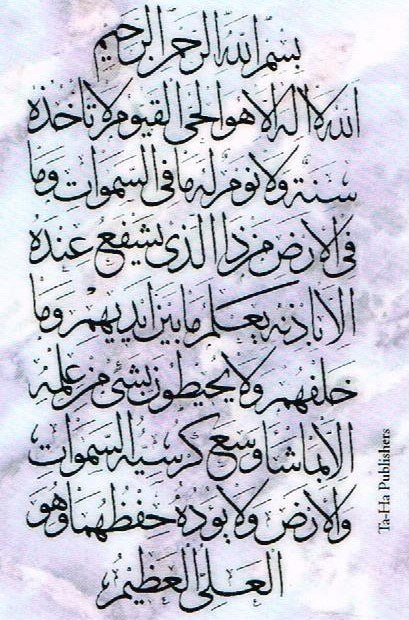 بسم الله الرحمن الرحيم
الله لا اله الا هو الحي القيوم لا تاخذه
سنة ولا نوم له ما في السموات وما
في الارض من ذا الذي يشفع عنده
الا باذنه يعلم ما بين ايديهم وما
خلفهم ولا يحيطون بشئ من علمه
الا بما شا وسع كرسيه السموات
والارض ولا يوده حفظهما وهو
العلي العظيم
Ta-Ha Publishers